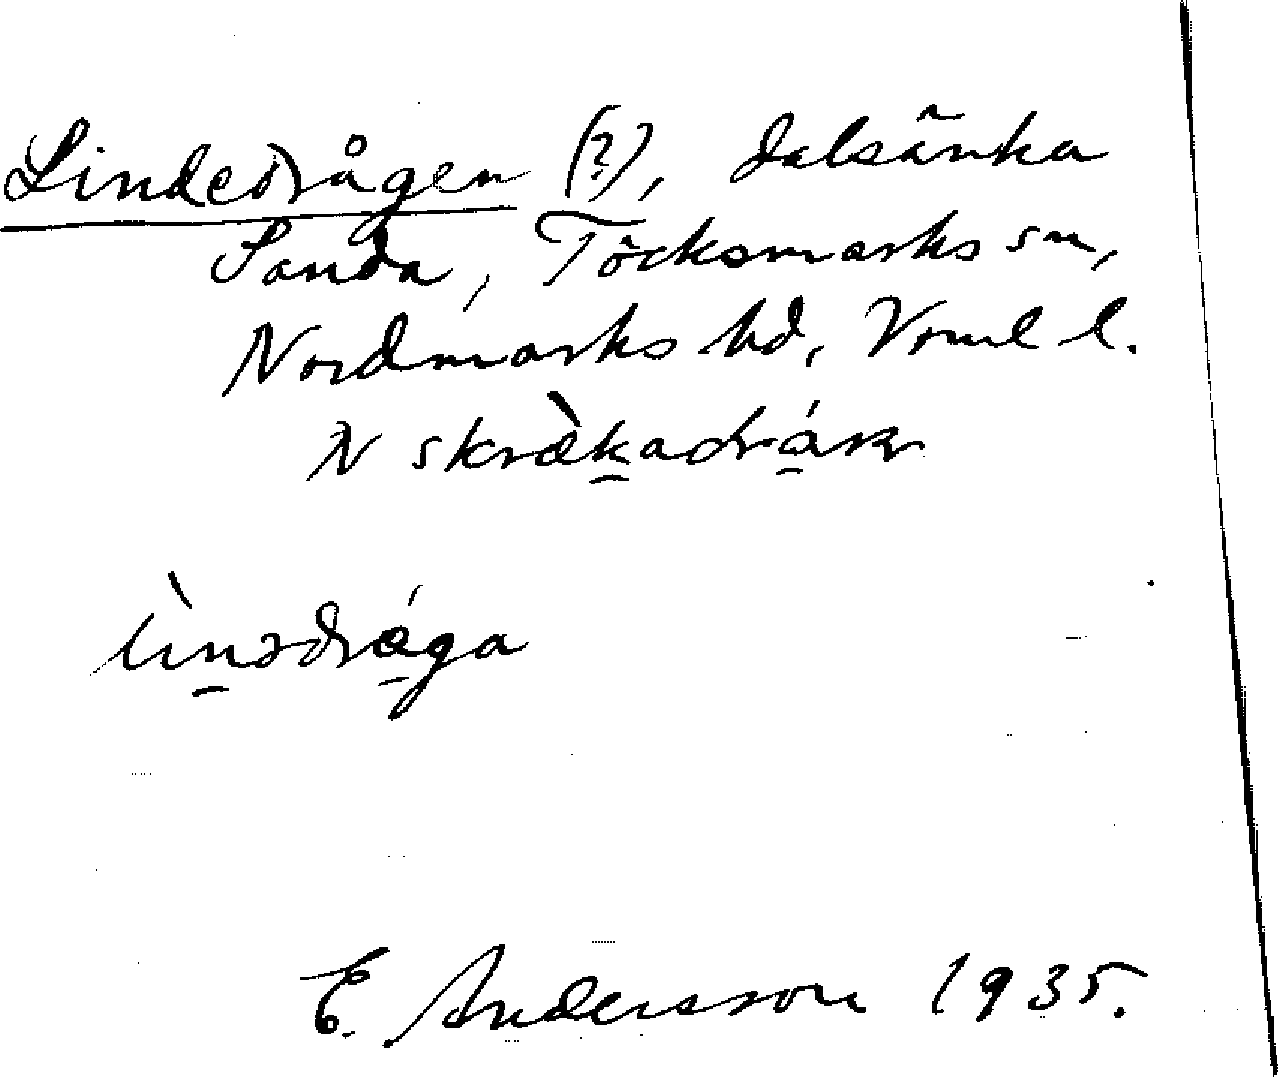 Lindedrågen (?), dalsänka
Sanda, Töcksmarks sn,
Nordmarks hd, Vrml l.
N skræ̀ka̠drá̠
lìn̠ədrá̠ga
E. Andersson 1935.